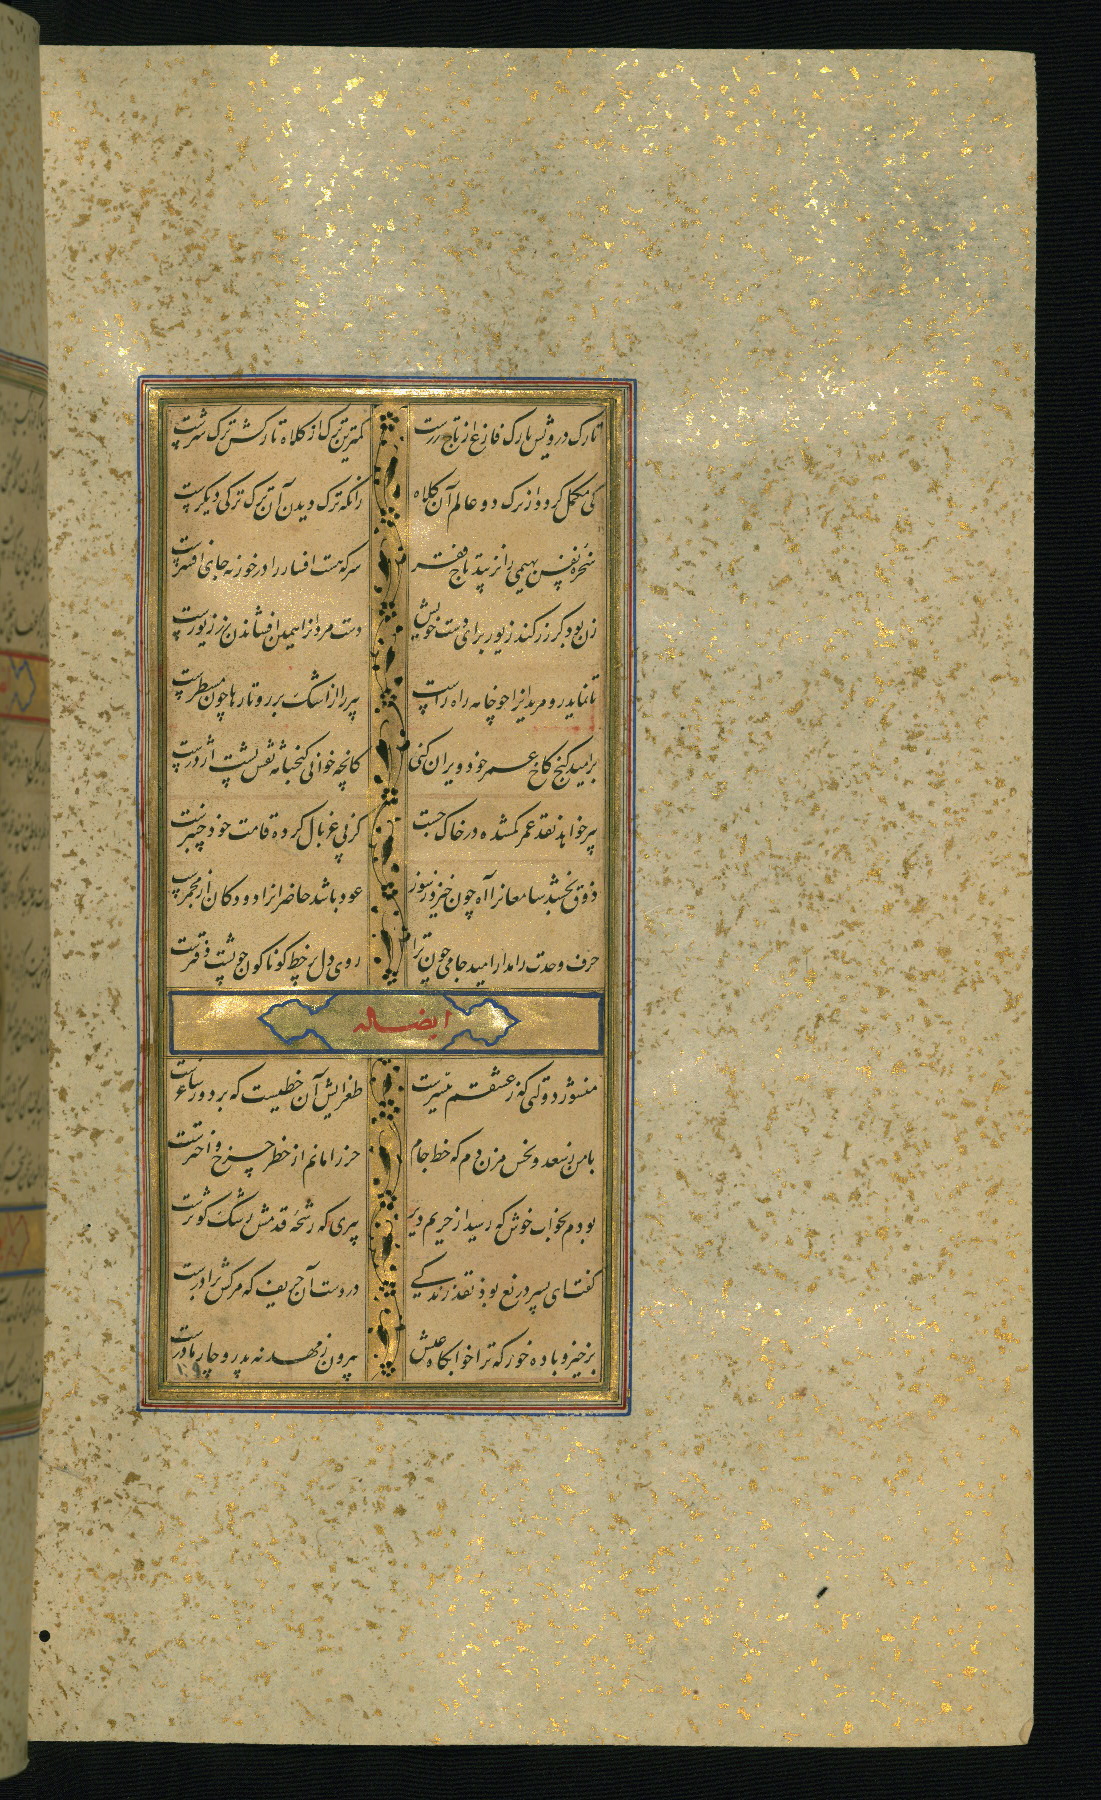 تارک درویش تارک فارغ از تاج زرست کمترین ترک از کلاه تارکش ترک سرست
کی مکمل کردد از ترک دو عالم آن کلاه زانکه ترک دیدن آن ترک ترکی دیکرست
نفس بهیمی را نزیبد تاج فقر سر که هست افسار را در خور نه جای افسرست
زن بود کر زر کند زیور برای دست خویش دست مردانرا همین افشاندن زر زیورست
تا نماید رو مریدانرا جو جامه راه راست پیر را از اشک بر رو تارها چون مسطرست
بر امید کنج کاخ عمر خود ویران کنی کانچه خوانی کنج نقش پشت اژدرست
پیر خواهد نقد عمر کمشده در خاک جست کز پی غربال کرده قامت خود چنبرست
ذوق بخشد سامعانرا آه چون خیزد ز سوز عود باشد حاضرانرا دود کان از مجمرست
حرف وحدت را مدار امید جامی چون ترا روی دل بر خط کوناکون جو پشت دفترست
ایضا له
منشور دولتی که ز عشقم میسرست طغرایش آن خطیست که بر دور ساغرست
با من ز سعد و نحس مزن دم که خط جام حرز امانم از خطر چرخ و اخترست
بودم بخواب خوش که رسید از حریم دیر پیری که رشحه قدمش رشک کوثرست
کفت ای پسر دریغ بود نقد زندکی در دست آن حریف که مرکش برادرست
برخیز و باده خور که ترا خوابکاه عیش بیرون ز مهد نه پدر و چار مادرست
۱۰۹